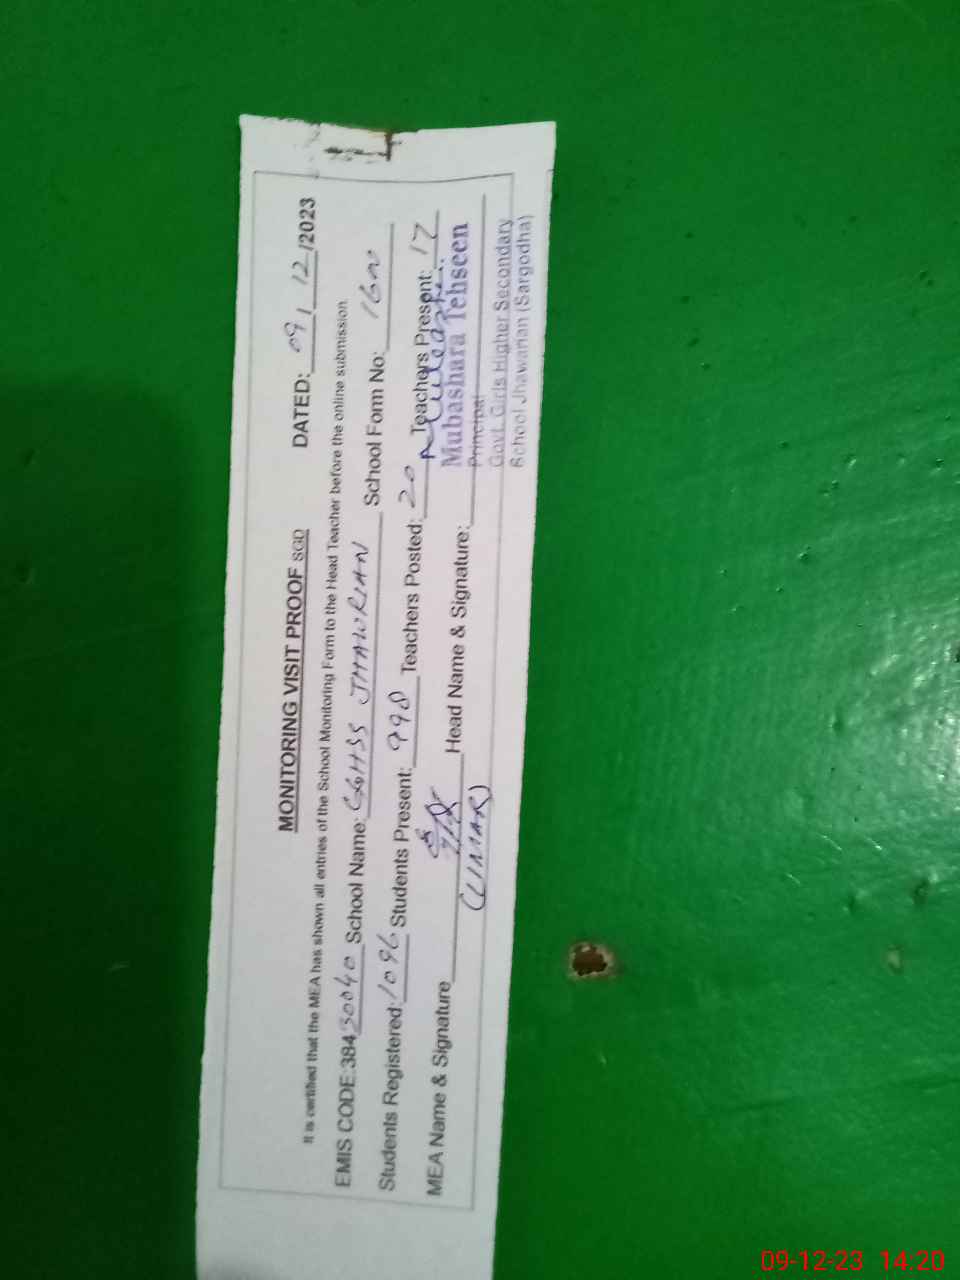 MONITORING VISIT PROOF SGD DATED: 09 / 12 /2023
It is certified that the MEA has shown all entries of the School Monitoring Form to the Head Teacher before the online submission.
EMIS CODE:38430040 School Name: GGHSS JHAWRIAN School Form No:
Students Registered: 1096 Students Present: 998 Teachers Posted: 20 Teachers Present: 17
MEA Name & Signature (UMAR) Head Name & Signature:
Mubashara Tehseen
Principal
Govt. Girls Higher Secondary
School Jhawarian (Sargodha)
09-12-23 14:20